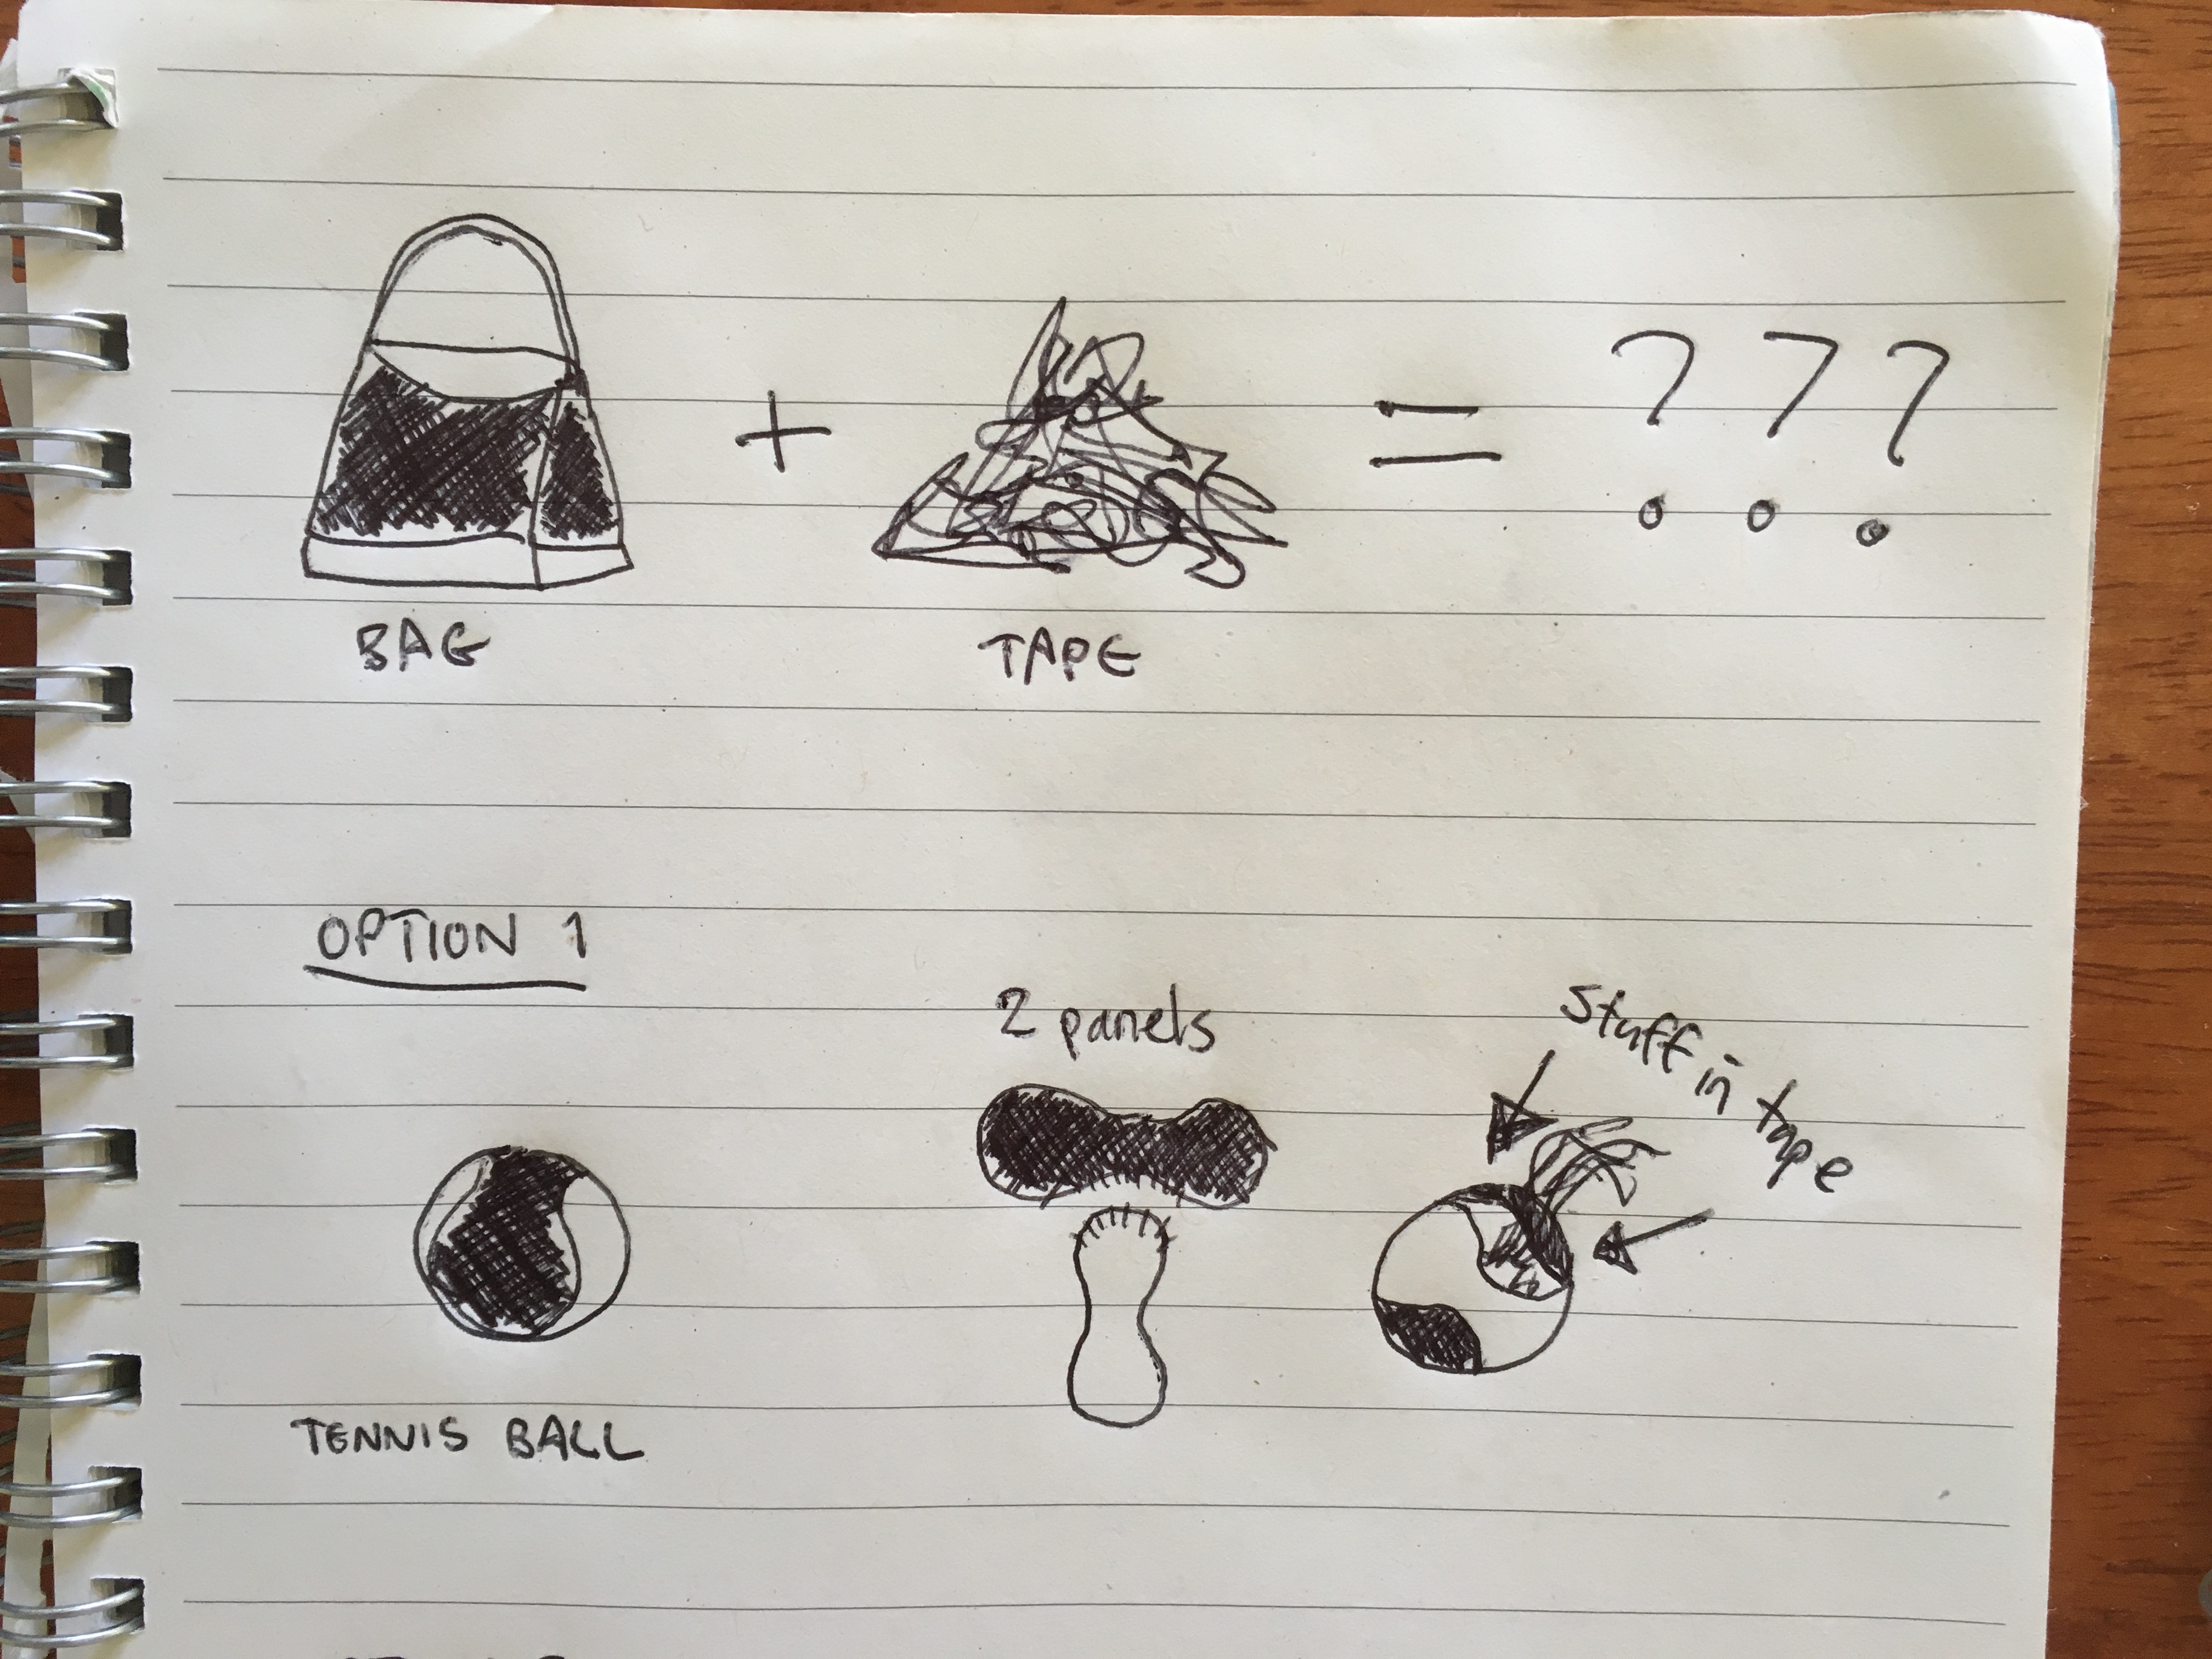 + = ???
BAG
TAPE
OPTION 1
2 panels
Stuff in tape
TENNIS BALL